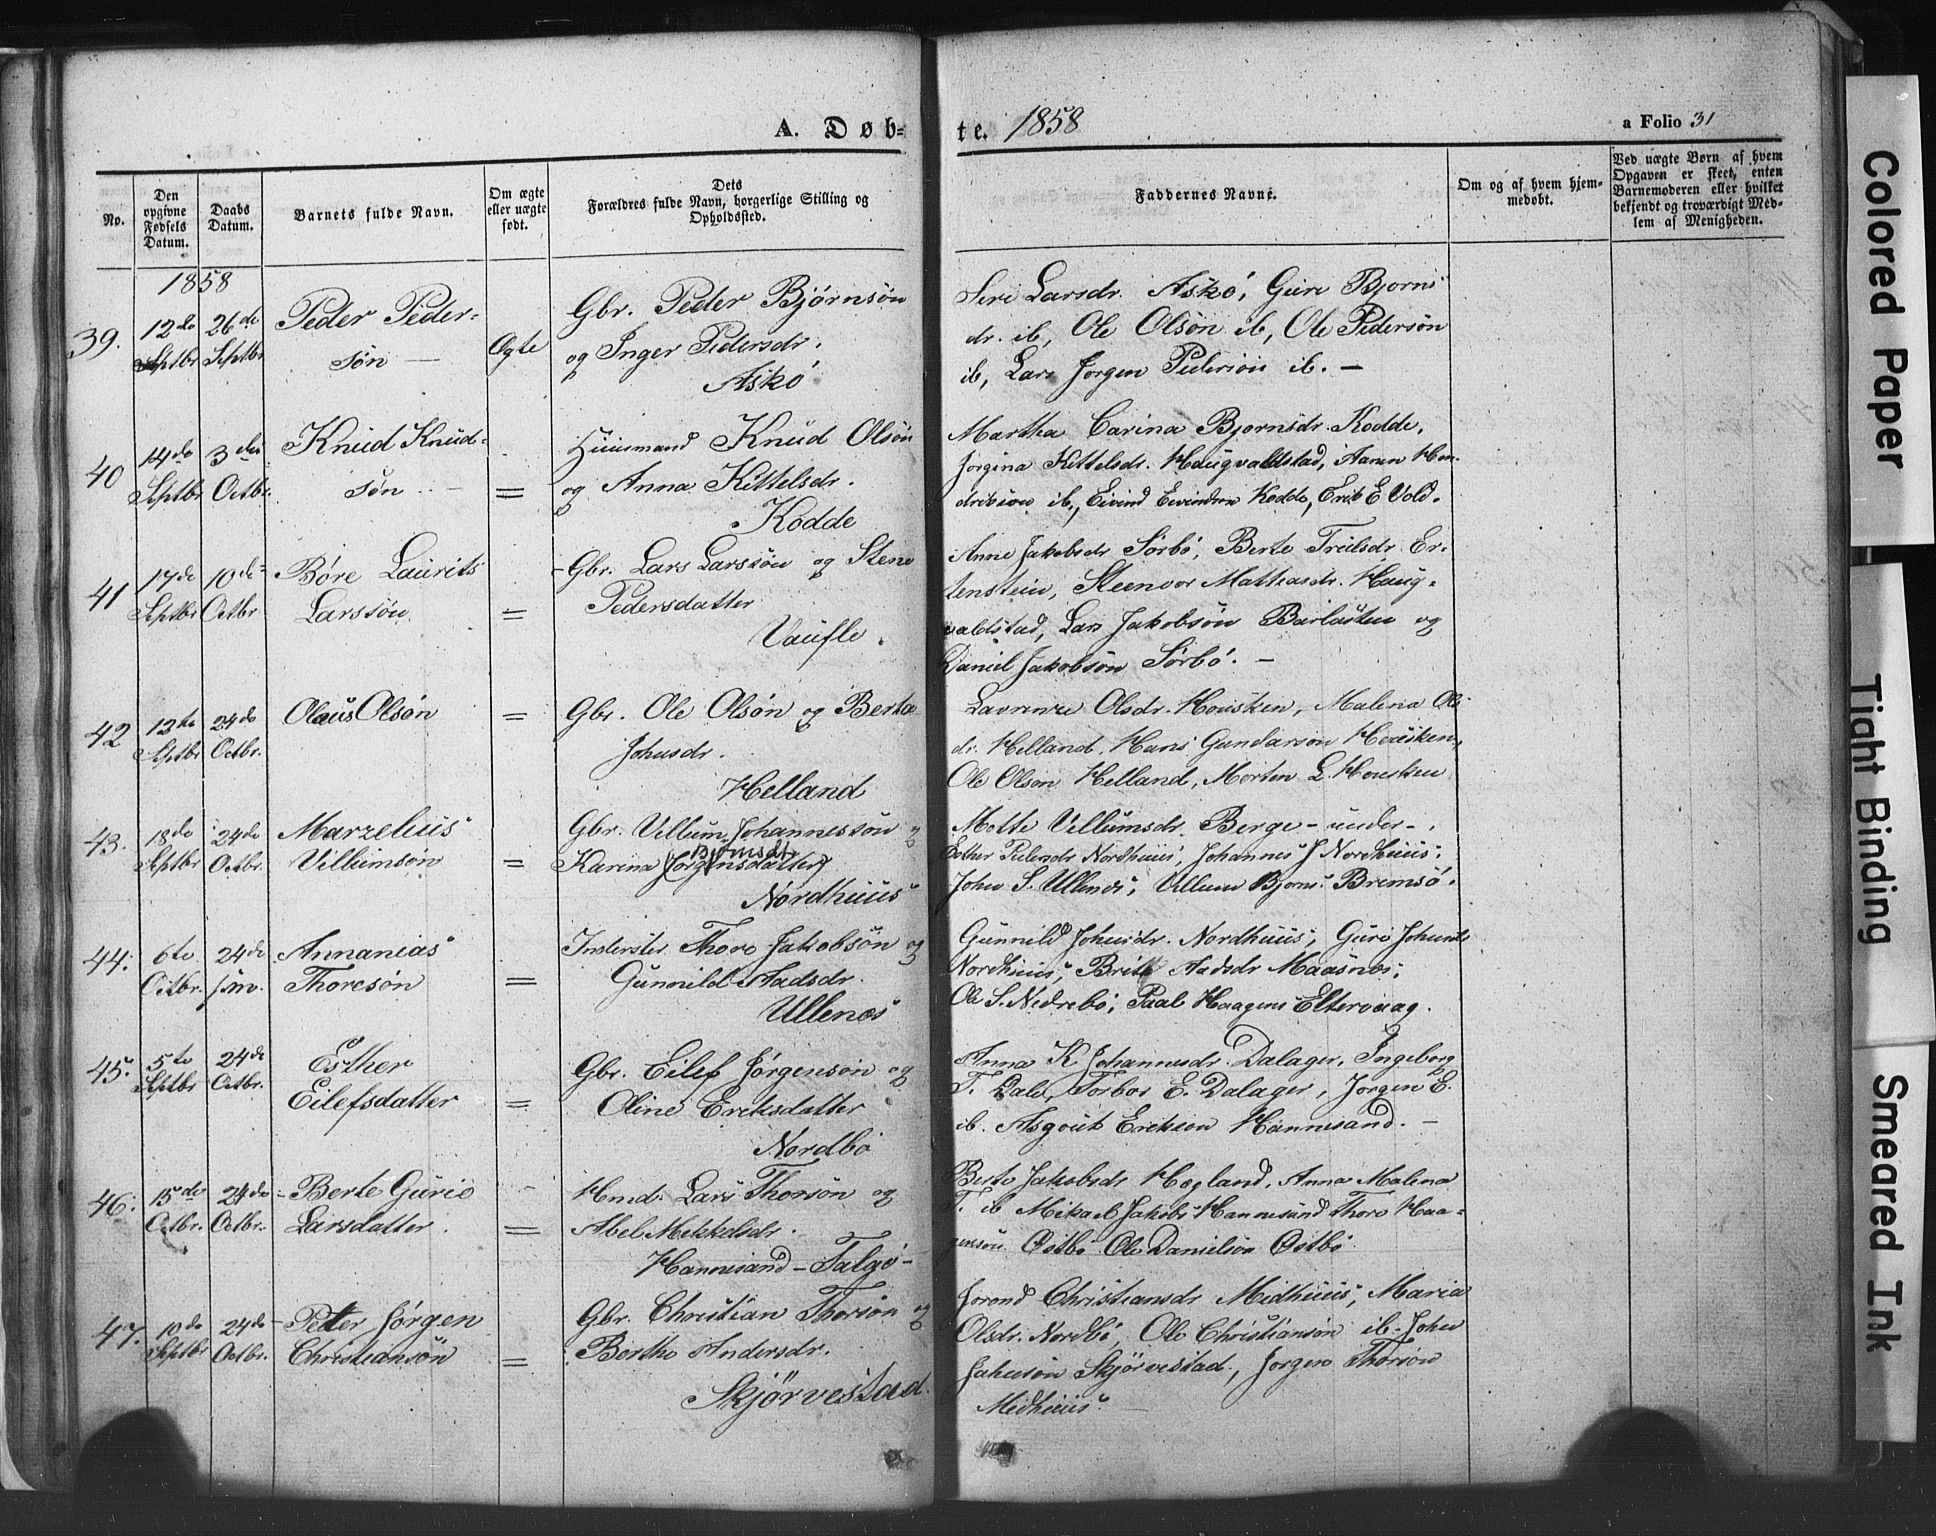 A. Døb-
te. 1858
a Folio 31
No.
Den opgivne Fødsels Datum.
Daabs Datum.
Barnets fulde Navn.
Om ægte eller uægte født.
Dets Forældres fulde Navn, borgerlige Stilling og Opholdssted.
Faddernes Navne.
Om og af hvem hjemmedøbt.
Ved uægte Børn af hvem Opgaven er skeet, enten Barnemoderen eller hvilket bekjendt og troværdigt Medlem af Menigheden.
1858
39. 12te Septbr 26de Septbr
Peder Peder-
søn —
Ægte
Gbr. Peder Bjørnsøn
og Inger Pedersdr.
Askø
Siri Larsdr. Askø, Guri Bjorns
dr. ib, Ole Olsön ib, Ole Pedersön
ib, Lars Jorgen Pedersön ib. —
40 14de Septbr 3die Octbr.
Knud Knud-
søn —
=
Huusmand Knud Olsøn
og Anna Kittelsdr.
Kodde
Martha Carina Bjornsdr. Kodde,
Jorgina Kittelsdr. Haugvaldstad, Aanen Hen-
driksön ib., Eivind Eivindsen Kodde, Erik E Vold.
41 17de Septbr 10de Octbr
Børe Laurits
Larssøn
=
Gbr. Lars Larssøn og Stene
Pedersdatter
Vaufle.
Anne Jakobsdr Sörbö, Berte Troilsdr. Er-
tenstein, Steenvor Mathiasdr. Haug-
valdstad, Lars Jakobsön Barlusten og
Daniel Jakobsön Sörbö. —
42 12te Septbr 24de Octbr.
Olaus Olsön
=
Gbr. Ole Olsön og Berta
Johnsdr.
Helland
Lavrense Olsdr. Housken, Malena Ols
dr. Helland. Hans Gundarson Housken,
Ole Olsen Helland, Morten L. Housken
43. 18de Septbr 24de Octbr.
Marzelius
Villumsön
=
Gbr. Villum Johannessön og
Bjørnsdtr
Karina (Jørgensdatter)
Nordhuus
Mette Villumsdr. Berge-under-,
Esther Pedersdr Nordhuus, Johannes J Nordhuus,
John S. Ullenes, Villum Bjorns. Bremsö.
44. 6te Octbr. 24de
Annanias
Thoresön
=
Inderster Thore Jakobsön og
Gunnild Aadsdr.
Ullenes
Gunnild Johnsdr. Nordhuus, Guro Johnsdr
Nordhuus, Brita Aadsdr Maasnes,
Ole S. Nedrebö, Paal Haagens. Eltervaag.
45. 5te Septbr 24de Octbr.
Esther
Eilefsdatter
=
Gbr. Eilef Jørgensön og
Oline Eriksdatter
Nordbö
Anna K Johannesdr. Dalager, Ingeborg
T. Dale, Torbor E. Dalager, Jorgen E.
ib. Asgout Eriksen Hannesand. —
46. 15de Octbr. 24de Octbr.
Berte Gurie
Larsdatter
=
Hmd. Lars Thorsön og
Abel Mikkelsdr.
Hannesand - Talgö -
Berte Jakobsdr Hogland, Anna Malena
T. ib Mikael Jakobs Hannesand Thore Haa-
gensön Östbö Ole Danielsön Östbö
47. 10de Septbr 24de Octbr.
Peter Jørgen
Christiansön
=
Gbr. Christian Thorsön og
Berthe Andersdr.
Skjörvestad.
Jorond Christiansdr Midhuus, Maria
Olsdr. Nordbö, Ole Christiansön ib. John
Johnsön Skjörvestad, Jorgen Thorsön
Midhuus
Colored Paper
Tight Binding
Smeared Ink